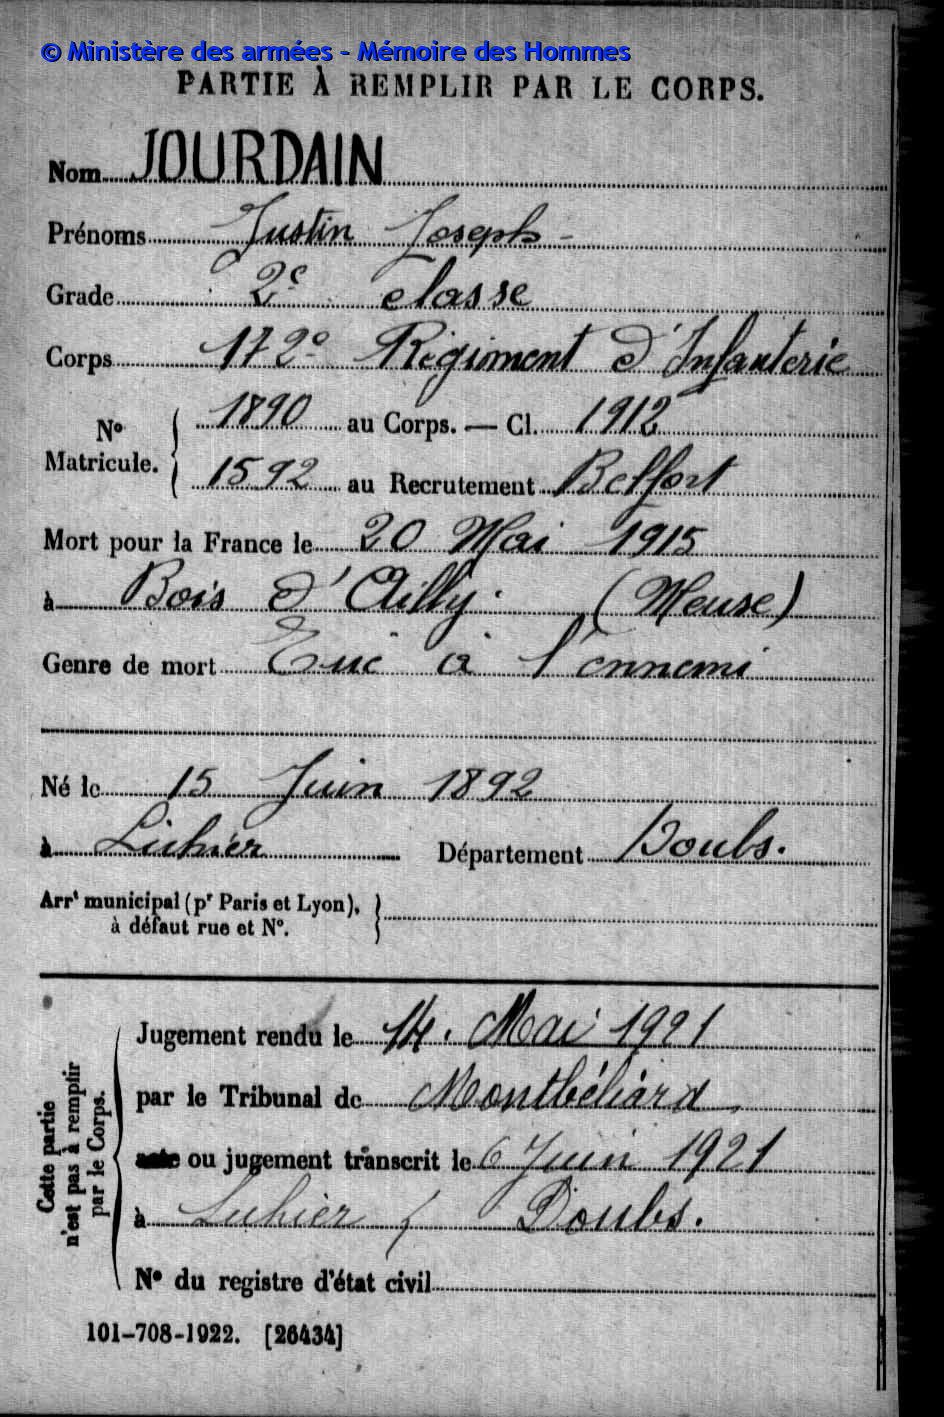 © Ministère des armées - Mémoire des Hommes
PARTIE À REMPLIR PAR LE CORPS.
Nom JOURDAIN
Prénoms Justin Joseph -
Grade 2e classe
Corps 172e Régiment d'Infanterie
No Matricule. { 1890 au Corps. — Cl. 1912
1592 au Recrutement Belfort
Mort pour la France le 20 Mai 1915
à Bois d'Ailly. (Meuse)
Genre de mort Tué à l'ennemi
Né le 15 Juin 1892
à Luhier Département Doubs.
Arrt municipal (pr Paris et Lyon), }
à défaut rue et No.
Cette partie
n'est pas à remplir
par le Corps.
Jugement rendu le 14. Mai 1921
par le Tribunal de Montbéliard
acte ou jugement transcrit le 6 Juin 1921
à Luhier / Doubs.
No du registre d'état civil
101-708-1922. [26434]